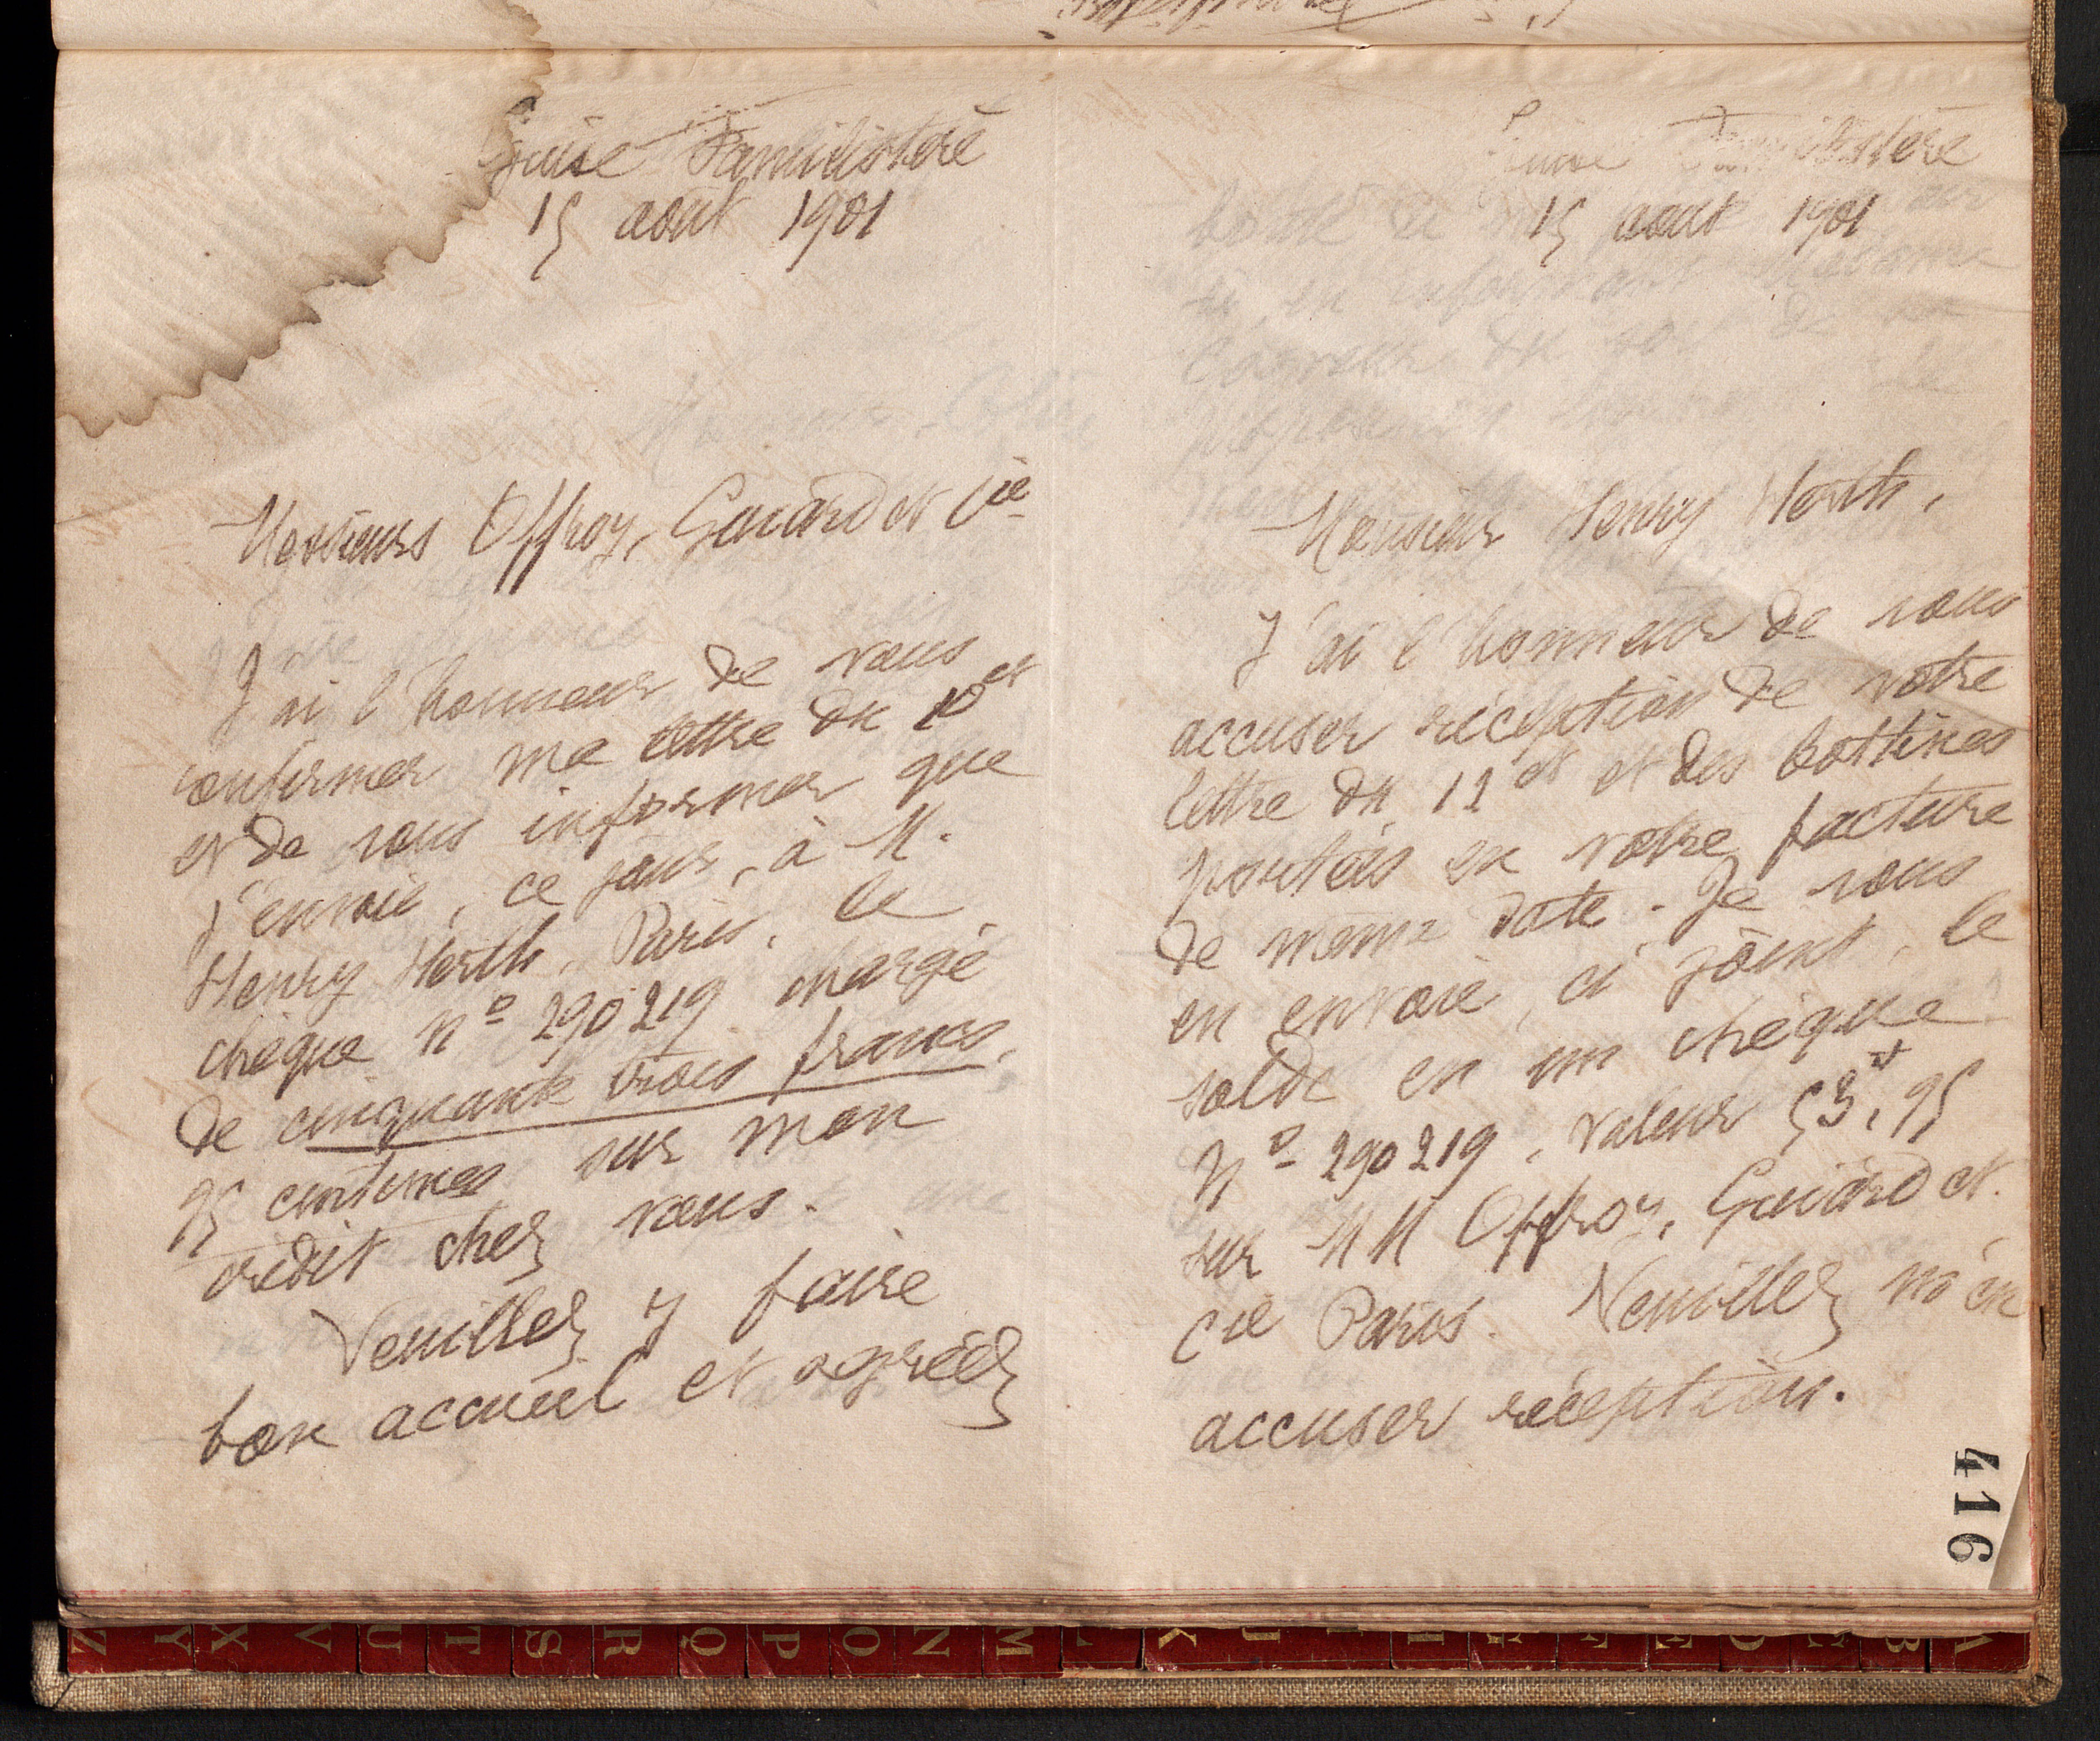 Guise Familistère
15 août 1901
Messieurs Offroy, Guiard et Cie
J'ai l'honneur de vous
confirmer ma lettre du 10 ct
et de vous informer que
j'envoie, ce jour, à M.
Henry Herth, Paris, le
chèque n° 290219 chargé
de cinquante trois francs,
95 centimes sur mon
crédit chez vous.
Veuillez y faire
bon accueil et agréez
Guise Familistère
15 août 1901
Monsieur Henry Herth,
J'ai l'honneur de vous
accuser réception de votre
lettre du 12 ct et des bottines
portées en votre facture
de même date. Je vous
en envoie, ci joint, le
solde en un chèque
N° 290219, valeur 53f,95
sur MM Offroy, Guiard et
Cie Paris. Veuillez m'en
accuser réception.
416
Z Y X V U T S R Q P O N M L K J I H G F E D C B A